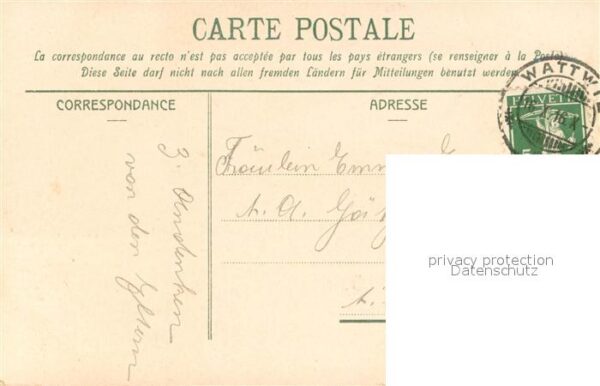 CARTE POSTALE
La correspondance au recto n'est pas acceptée par tous les pays étrangers (se renseigner à la Poste)
Diese Seite darf nicht nach allen fremden Ländern für Mitteilungen benutzt werden
CORRESPONDANCE
ADRESSE
WATTWIL
HELVETIA
5
Fräulein
z. Andenken
von den Eltern
privacy protection
Datenschutz